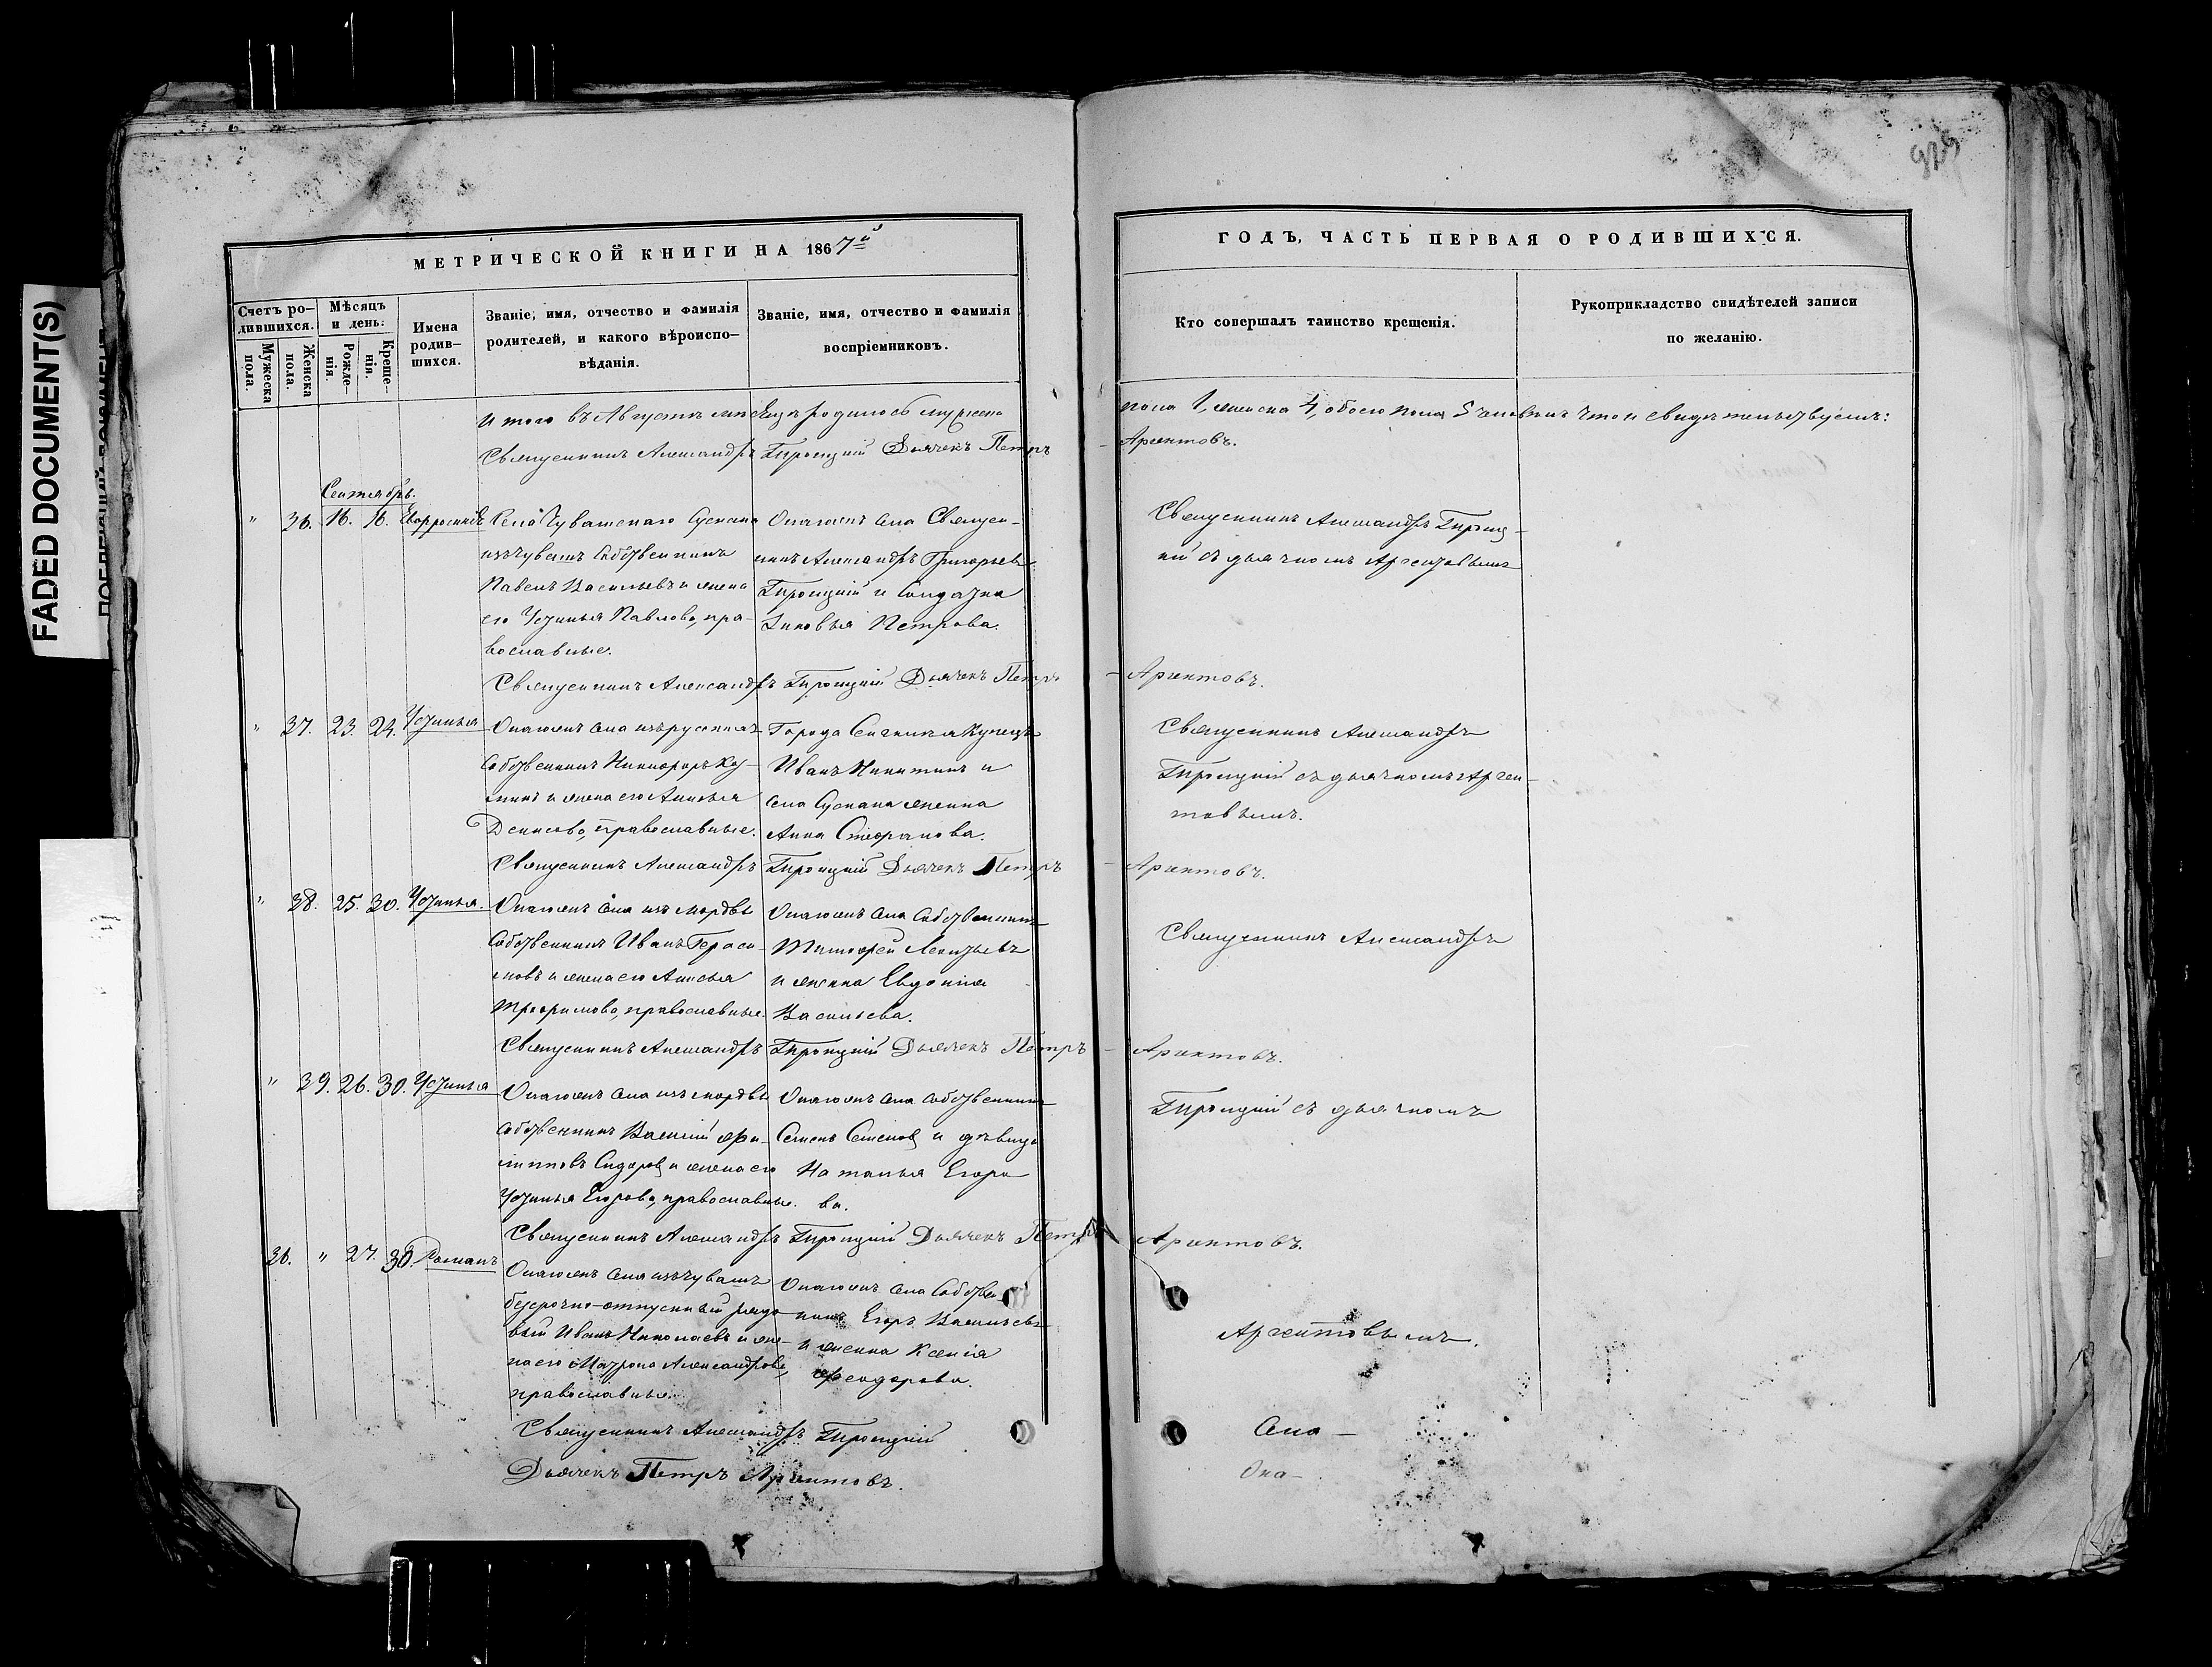 FADED DOCUMENT(S)
929
МЕТРИЧЕСКОЙ КНИГИ НА 1867й
ГОДЪ, ЧАСТЬ ПЕРВАЯ О РОДИВШИХСЯ.
Счетъ ро-
дившихся.
Мужеска
пола.
Женска
пола.
Мѣсяцъ
и день:
Рожде-
нія.
Креще-
нія.
Имена
родив-
шихся.
Званіе, имя, отчество и фамилія
родителей, и какого вѣроиспо-
вѣданія.
Званіе, имя, отчество и фамилія
воспріемниковъ.
Кто совершалъ таинство крещенія.
Рукоприкладство свидѣтелей записи
по желанію.
Итого въ Августѣ мѣсяцѣ родилось мужеска
пола 1, женска 4, обоего пола 5 человѣкъ что и свидѣтельствуемъ:
Священникъ Александръ Троицкій Дьячекъ Петръ
Аристовъ.
Сентябрь.
" 36. 16. 16.
Села Чувашскаго
изъ чувашъ Собственникъ
Павелъ Васильевъ и жена
его Устинья Павлова, пра-
вославные.
Онаго жъ села Священ-
никъ Александръ Григорьевъ
Троицкій и Солдатка
Зиновья Петрова.
Священникъ Александръ Троиц-
кій съ дьячкомъ
Священникъ Александръ Троицкій Дьячекъ Петръ
" 37. 23. 24. Устинья
Онаго жъ села изъ русскихъ
Собственникъ Никифоръ Ку-
и жена его Анисья
Денисова, православные.
Города Купецъ
Иванъ Никитинъ и
села женка
Анна Стефанова.
Священникъ Александръ
Троицкій съ дьячкомъ
Священникъ Александръ Троицкій Дьячекъ Петръ
" 38. 25. 30. Устинья.
Онаго жъ села изъ мордвы
Собственникъ Иванъ Гераси-
мовъ и жена его Анисья
Трофимова, православные.
Онаго жъ села Собственникъ
Тимофей Леонтьевъ
и женка Евдокія
Васильева.
Священникъ Александръ
Священникъ Александръ Троицкій Дьячекъ Петръ
" 39. 26. 30. Устинья
Онаго жъ села изъ мордвы
Собственникъ Василій Фи-
липповъ Сидоровъ и жена его
Устинья Егорова, православные.
Онаго жъ села Собственникъ
Семенъ Семеновъ и дѣвица
Наталья Егоро
ва.
Троицкій съ дьячкомъ
Священникъ Александръ Троицкій Дьячекъ Петръ
36. " 27. 30. Романъ
Онаго жъ села изъ чувашъ
безсрочно-отпускный рядо
вый Иванъ Николаевъ и же-
на его Матрона Александрова,
православные.
Онаго жъ села Собствен
никъ Егоръ Васильевъ
и женка Ксенія
Феодорова.
Священникъ Александръ Троицкій
Дьячекъ Петръ